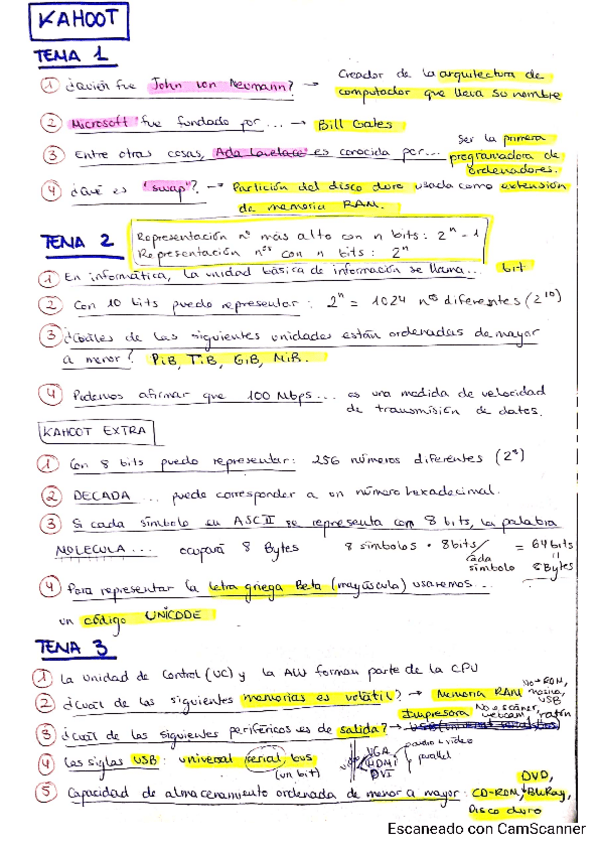 KAHOOT
TEMA 1
① ¿Quién fue John von Neumann? → Creador de la arquitectura de
computador que lleva su nombre
② Microsoft fue fundado por ... → Bill Gates
③ Entre otras cosas, Ada Lovelace es conocida por... Ser la primera
programadora de
ordenadores.
④ ¿Qué es "swap"? → Partición del disco duro usada como extensión
de memoria RAM.
TEMA 2
Representación nº más alto con n bits: 2^n - 1
Representación nºs con n bits: 2^n
① En informática, la unidad básica de información se llama... bit
② Con 10 bits puedo representar: 2^n = 1024 nºs diferentes (2^10)
③ ¿Cuáles de las siguientes unidades están ordenadas de mayor
a menor? PiB, TiB, GiB, MiB.
④ Podemos afirmar que 100 Mbps... es una medida de velocidad
de transmisión de datos.
KAHOOT EXTRA
① Con 8 bits puedo representar: 256 números diferentes (2^8)
② DECADA ... puede corresponder a un número hexadecimal.
③ Si cada símbolo en ASCII se representa con 8 bits, la palabra
MOLECULA ... ocupará 8 Bytes 8 símbolos · 8bits/cada símbolo = 64 bits
=
8Bytes
④ Para representar la letra griega Beta (mayúscula) usaremos ...
un código UNICODE
TEMA 3
① La Unidad de Control (UC) y la ALU forman parte de la CPU
② ¿Cuál de las siguientes memorias es volátil? → Memoria RAM No → ROM,
USB
③ ¿Cuál de los siguientes periféricos es de salida? → Impresora No escáner,
webcam, ratón
④ Las siglas USB: universal serial bus
(un bit)
VGA
HDMI
DVI
audio + video
parallel
⑤ Capacidad de almacenamiento ordenada de menor a mayor: CD-ROM, DVD, BluRay,
Disco duro
Escaneado con CamScanner